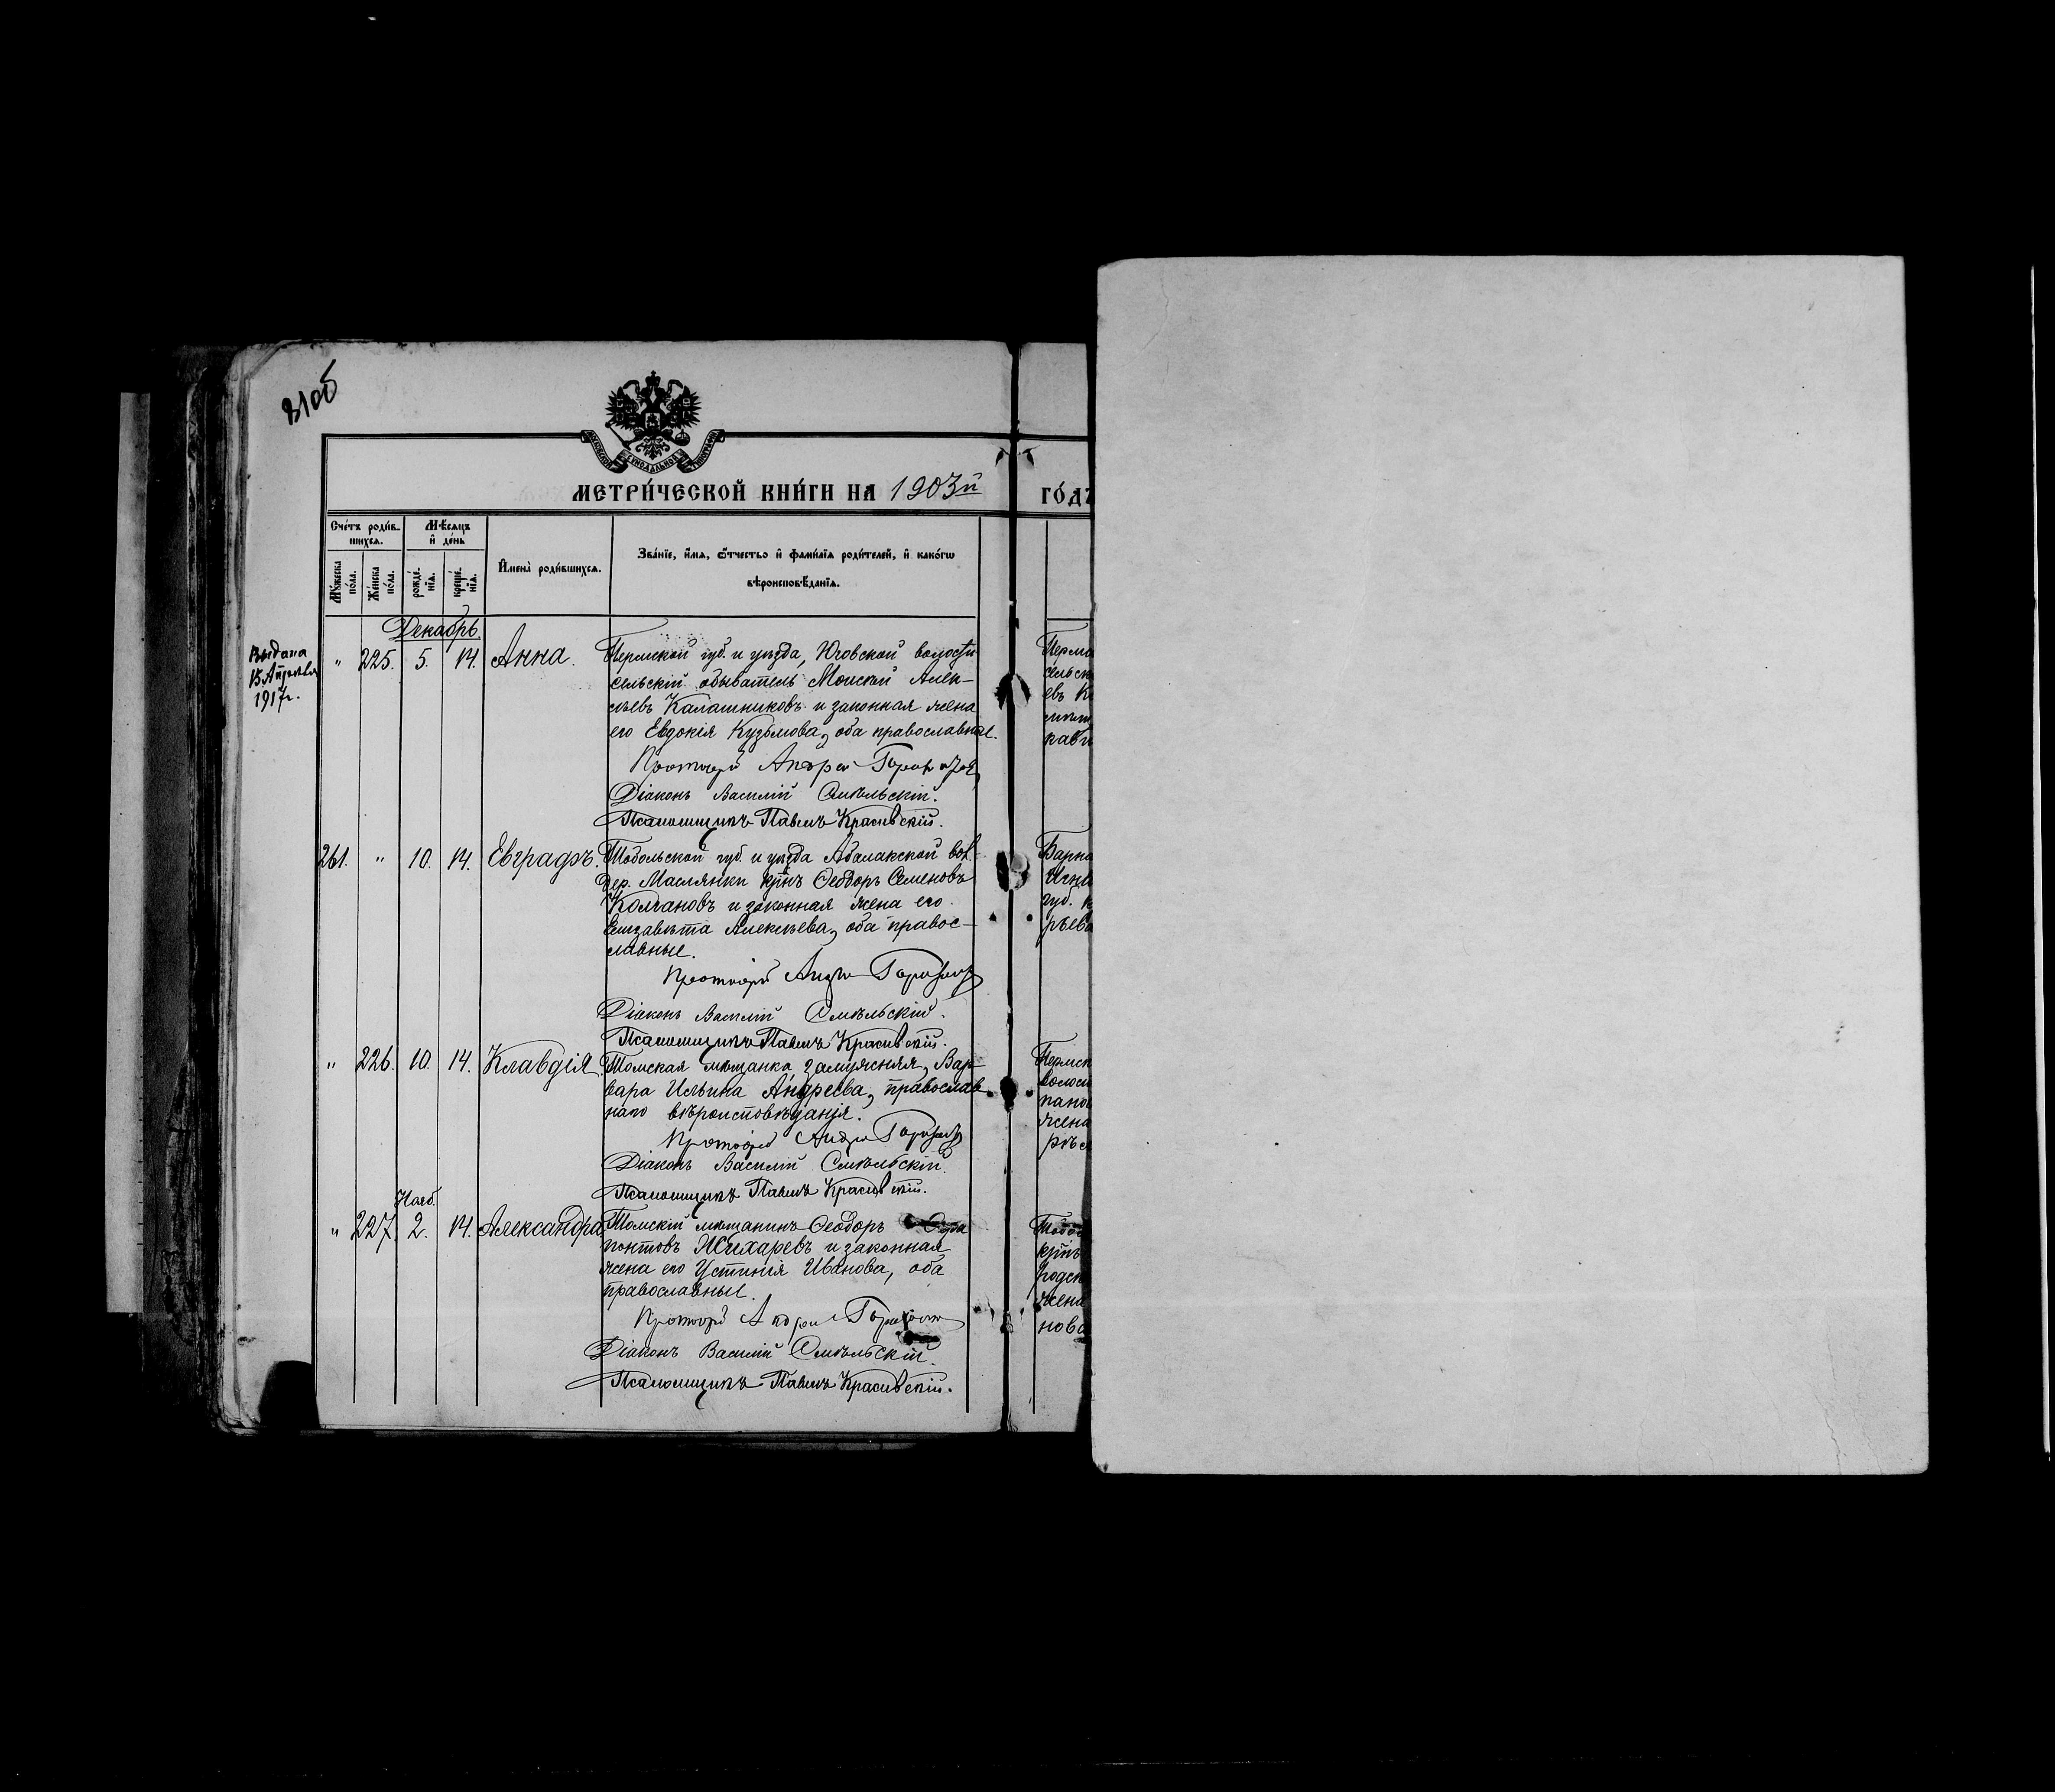 310б
МОСКОВСКОЙ СѴНОДАЛЬНОЙ ТИПОГРАФІИ
МЕТРИ́ЧЕСКОЙ КНИ́ГИ НА 1903й ГО́ДЪ
Сче́тъ роди́в-
шихся.
Мѣ́сяцъ
и҆ де́нь
Мꙋ́жеска по́ла.
Же́нска по́ла.
рожде́-
нїѧ.
креще́-
нїѧ.
И҆мена̀ роди́вшихсѧ.
Зва́нїе, и҆́мѧ, ѻ҆́тчество и҆ фами́лїѧ роди́телей, и҆ како́гѡ
вѣроисповѣ́данїѧ.
Декабрь.
Выдана
15 Апрѣля
1917г.
" 225. 5. 14. Анна.
Пермской губ. и уѣзда, Юговской волости
сельскій обыватель Моисей Алек-
сѣевъ Калашниковъ и законная жена
его Евдокія Кузьмова, оба православные.
Протоіерей Андрей
Діаконъ Василій Смѣльскій.
Псаломщикъ Павелъ Красивскій.
261. " 10. 14. Евграфъ.
Тобольской губ. и уѣзда Абалакской вол.
дер. Маслянки кр̃нъ Ѳеодоръ Семеновъ
Колчановъ и законная жена его
Елизавета Алексѣева, оба правос-
лавные.
Протоіерей Андрей
Діаконъ Василій Смѣльскій.
Псаломщикъ Павелъ Красивскій.
" 226. 10. 14. Клавдія.
Томская мѣщанка, замужняя, Вар-
вара Ильина Андреева, православ
наго вѣроисповѣданія.
Протоіерей Андрей
Діаконъ Василій Смѣльскій.
Псаломщикъ Павелъ Красивскій.
Нояб.
" 227. 2. 14. Александра
Томскій мѣщанинъ Ѳеодоръ
понтовъ Жихаревъ и законная
жена его Устинія Иванова, оба
православные.
Протоіерей Андрей
Діаконъ Василій Смѣльскій.
Псаломщикъ Павелъ Красивскій.
Пермс
сельск
евъ К
Барна
Игна
губ. к
рьева
Пермск
волос
пано
жена
Тобо
кр̃нъ
Родс
жена
нова